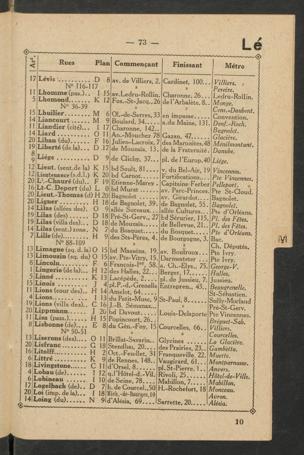 — 73 —
Lé
Arᵗ. Rues Plan Commençant Finissant Métro
17 Lévis D 8 av. de Villiers, 2. Cardinet, 100... Villiers.
Nº 116-117 Pereire.
11 Lhomme (pas.) I 15 av. Ledru-Rollin. Charonne, 26... Ledru-Rollin.
5 Lhomond K 12 Fos.-St-Jacq., 26 de l'Arbalète, 8.. Monge.
Nº 36-39 Cens.-Daubent.
15 Lhuillier M 6 Ol.-de-Serres, 33 en impasse Convention.
14 Liancourt M 9 Boulard, 34 a. du Maine, 131. Denf.-Roch.
11 Liandier (cité) I 17 Charonne, 142
14 Liard O 11 78 Gazan, 47 Glacière.
20 Liban (du) F 16 Julien-Lacroix, 7 des Maronites, 48 Ménilmontant.
19 Liberté (de la) D 17 de Mouzaïa, 13. de la Fraternité. Danube.
9 Liège D 9 de Clichy, 37 pl. de l'Europ. 40 Liège.
12 Lieut. N 15 bd Soult, 81 v. du Bel-Air, 19 Vincennes.
bd Carnot Fortifications Pte Vincennes.
20 F 19 Etienne-Marey. Capitaine Ferber Pelleport.
16 Lt-C. Deport (du) L 0 bd Murat av. Parc-Princes. Pte St-Cloud.
20 Lieut. Thomas (d) H 20 Bagnolet av. Girardot Bagnolet.
20 Ligner H 18 de Bagnolet, 39. de Bagnolet, 55. Bagnolet.
19 Lilas (allées des) O 9 allée Sureaux allée Cultures
19 Lilas (des) D 18 Pré-St-Gerv., 27 bd Sérurier, 115. Pl. des Fêtes.
19 Lilas (villa des) D 18 de Mouzaïa de Bellevue, 21. Pl. des Fêtes.
14 Lilas N 7 du Bosquet du Bosquet
7 Lille (de) H 9 des Sts-Pères, 4. de Bourgogne, 3. Bac.
Nº 88-109 Ch. Députés.
13 Limagne (sq. d. la) O 15 bd Masséna, 19. av. Boutroux Pte Ivry.
13 Limousin (sq. du) O 15 av. Pte-Vitry, 15 Darmesteter Pte Ivry.
8 Lincoln F 6 François-Iᵉʳ, 58 a. Ch.-Elys., 75. George-V.
1 Lingerie (de la) H 12 des Halles, 22 Berger, 17 Halles.
5 Linné K 13 Lacépède, 2 pl. de Jussieu, 7. Jussieu.
15 Linois I 4 pl. P.-d.-Grenelle Entrepren., 45. Beaugrenelle.
4 Lions (cour des) H 14 Amelot, 94 St-Sébastien.
4 Lions I 13 du Petit-Musc, 9 St-Paul, 8 Sully-Morland
19 Lions (villa des) C 16 J.-B. Sémanaz Pré-St-Gervais
20 Lippmann I 20 bd Davout Louis-Delaporte Pte Vincennes.
Lisa (pas.) H 15 Popincourt, 26 Bréguet-Sab.
8 Lisbonne (de) E 8 du Gén.-Foy, 15 Courcelles, 66 Villiers.
Nº 50-51 Courcelles.
13 Liserons (des) O 11 Brillat-Savarin Glycines La Glacière.
19 Lisfranc G 18 Stendhal, 20 des Prairies, 23. Gambetta.
18 Litolff H 2 Ott.-Feuillet, 31 Franqueville, 22. Muette.
6 Littré K 9 de Rennes, 148. Vaugirard, 81 Montparnasse.
8 Livingstone C 11 d'Orsel, 8 pl. St-Pierre, 1. Anvers.
4 Lobau (de) I 12 q. l'Hôtel-d.-Vil. Rivoli, 25 Hôtel-de-Ville.
6 Lobineau I 10 de Seine, 78 Mabillon, 7 Mabillon.
17 Logelbach (de) D 7 b. de Courcel., 50 H.-Rochefort, 18 Monceau.
20 Loi (imp. de la) I 18 10 Avron.
14 Loing (du) N 9 d'Alésia, 69 Sarrette, 20 Alésia.
10